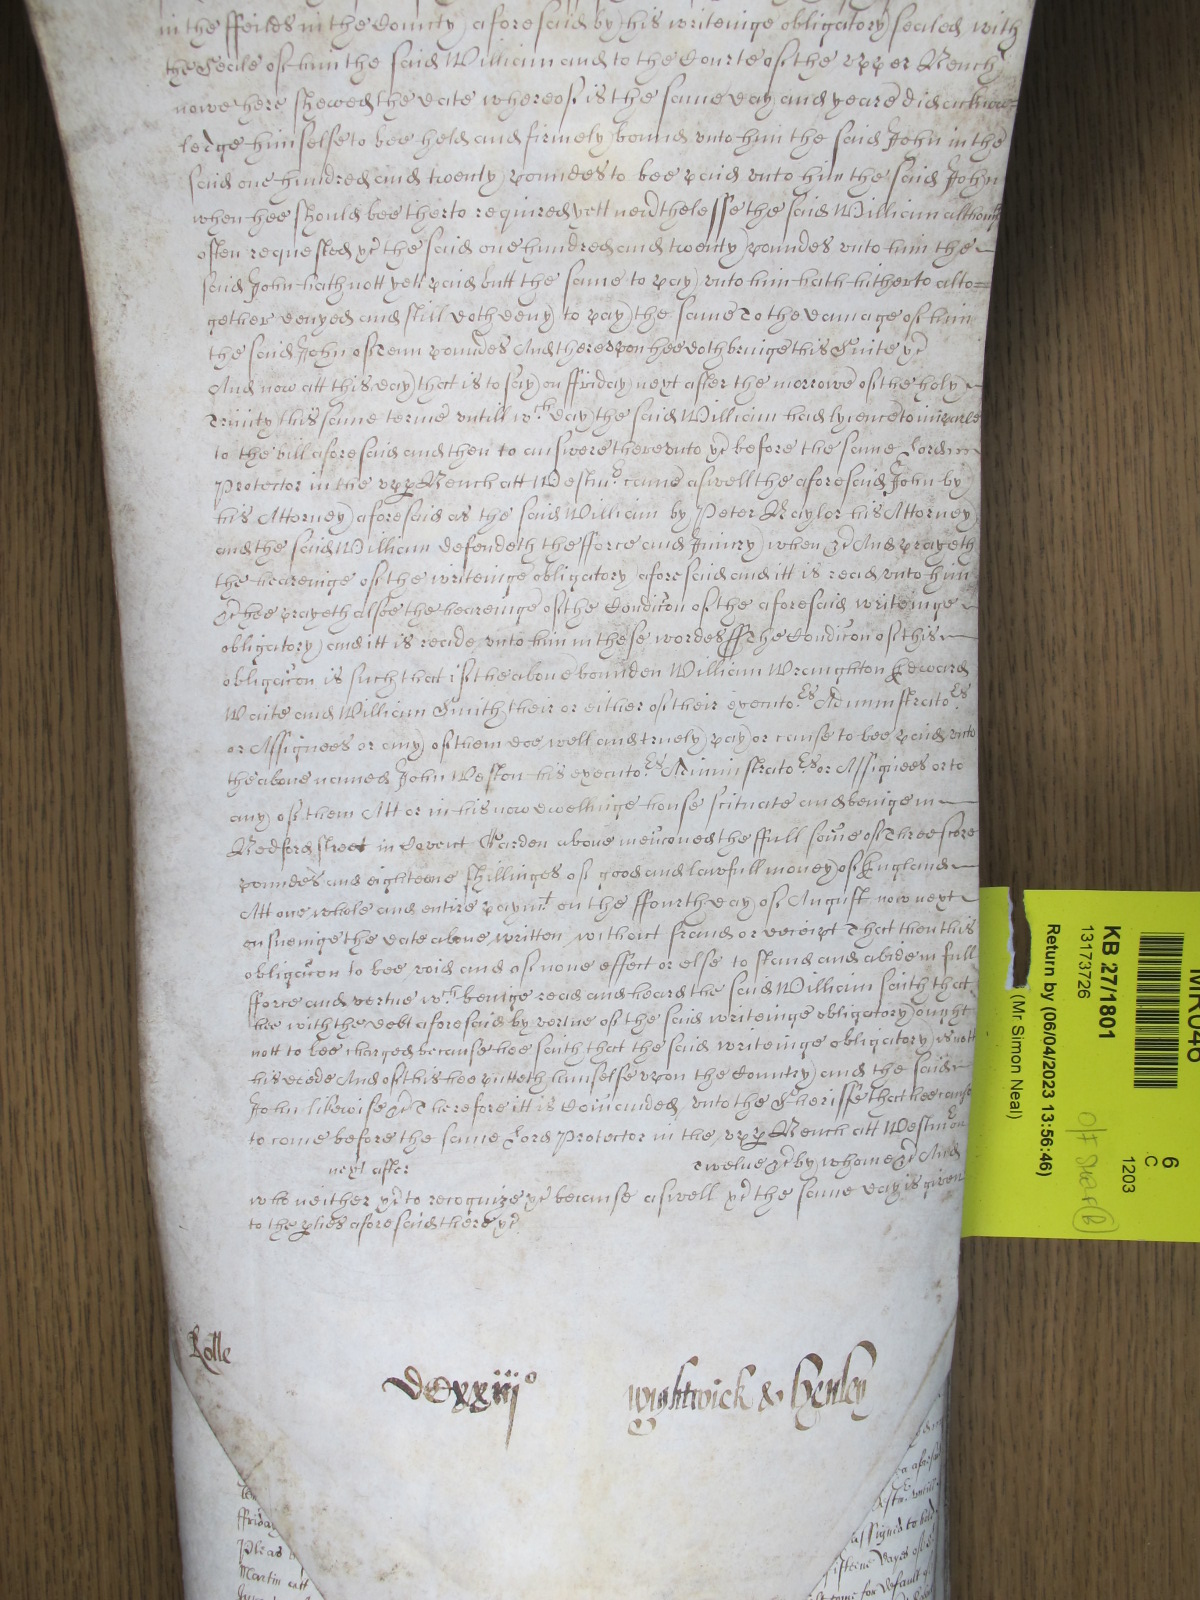 in the ffeilds in the County aforesaid by his writeinge obligatory sealed with
the Seale of him the said William and to the Courte of the vpper Bench
nowe here shewed the date whereof is the same day and yeare did acknow=
ledge himselfe to bee held and firmely bound vnto him the said John in the
said one hundred and twenty poundes to bee paid vnto him the said John
when hee should bee therto required yett neverthelesse the said William although
often requested &c the said one hundred and twenty poundes vnto him the
said John hath nott yett paid butt the same to pay vnto him hath hitherto alto=
gether denyed and still doth deny to pay the same To the damage of him
the said John of Tenn poundes And therevpon hee doth bringe this Suite &c
And now att this day that is to say on ffriday next after the morrowe of the holy
Trinity this same terme vntill wch day the said William had lycence to imparle
to the bill aforesaid and then to answere therevnto &c before the same Lord
Protector in the vpp Bench att Westmr came aswell the aforesaid John by
his Attorney aforesaid as the said William by Peter Baylor his Attorney
and the said William defendeth the fforce and Iniury when &c And prayeth
the heareinge of the writeinge obligatory aforesaid and itt is read vnto him
&c hee prayeth alsoe the heareinge of the Condicon of the aforesaid writeinge
obligatory and itt is reade vnto him in these wordes ss The Condicon of this
obligacon is such that if the aboue bounden William Wraughton Edward
Waite and William Smith their or either of their executors Administrators
or Assignees or any of them doe well and truely pay or cause to bee paid vnto
the aboue named John Weston his executors Administrators or Assignees or to
any of them Att or in his now dwellinge house scituate and beinge in
Bedford street in Covent Garden aboue menconed the ffull some of Threescore
poundes and eighteene shillinges of good and lawfull money of England
Att one whole and entire paymt on the ffourth day of August now next
ensueinge the date aboue written without fraud or deceipt That then this
obligacon to bee void and of none effect or else to stand and abide in full
fforce and vertue wch beinge read and heard the said William saith that
hee with the debt aforesaid by vertue of the said writeinge obligatory ought
nott to bee charged because hee saith that the said writeinge obligatory is nott
his deede And of this hee putteth himselfe vpon the Country and the said
John likewise &c Therefore itt is Comanded vnto the Sheriffe that hee cause
to come before the same Lord Protector in the vpp Bench att Westmr on
next after twelue &c by whome &c And
who neither &c to recognize &c because aswell &c the same day is given
to the pties aforesaid there &c
Rolle
DCxxiijo
Wightwick & Henley
ffriday
Pleas
Martin att
KB 27/1801
13173726
Return by (06/04/2023 13:56:46)
(Mr Simon Neal)
6
C
1203